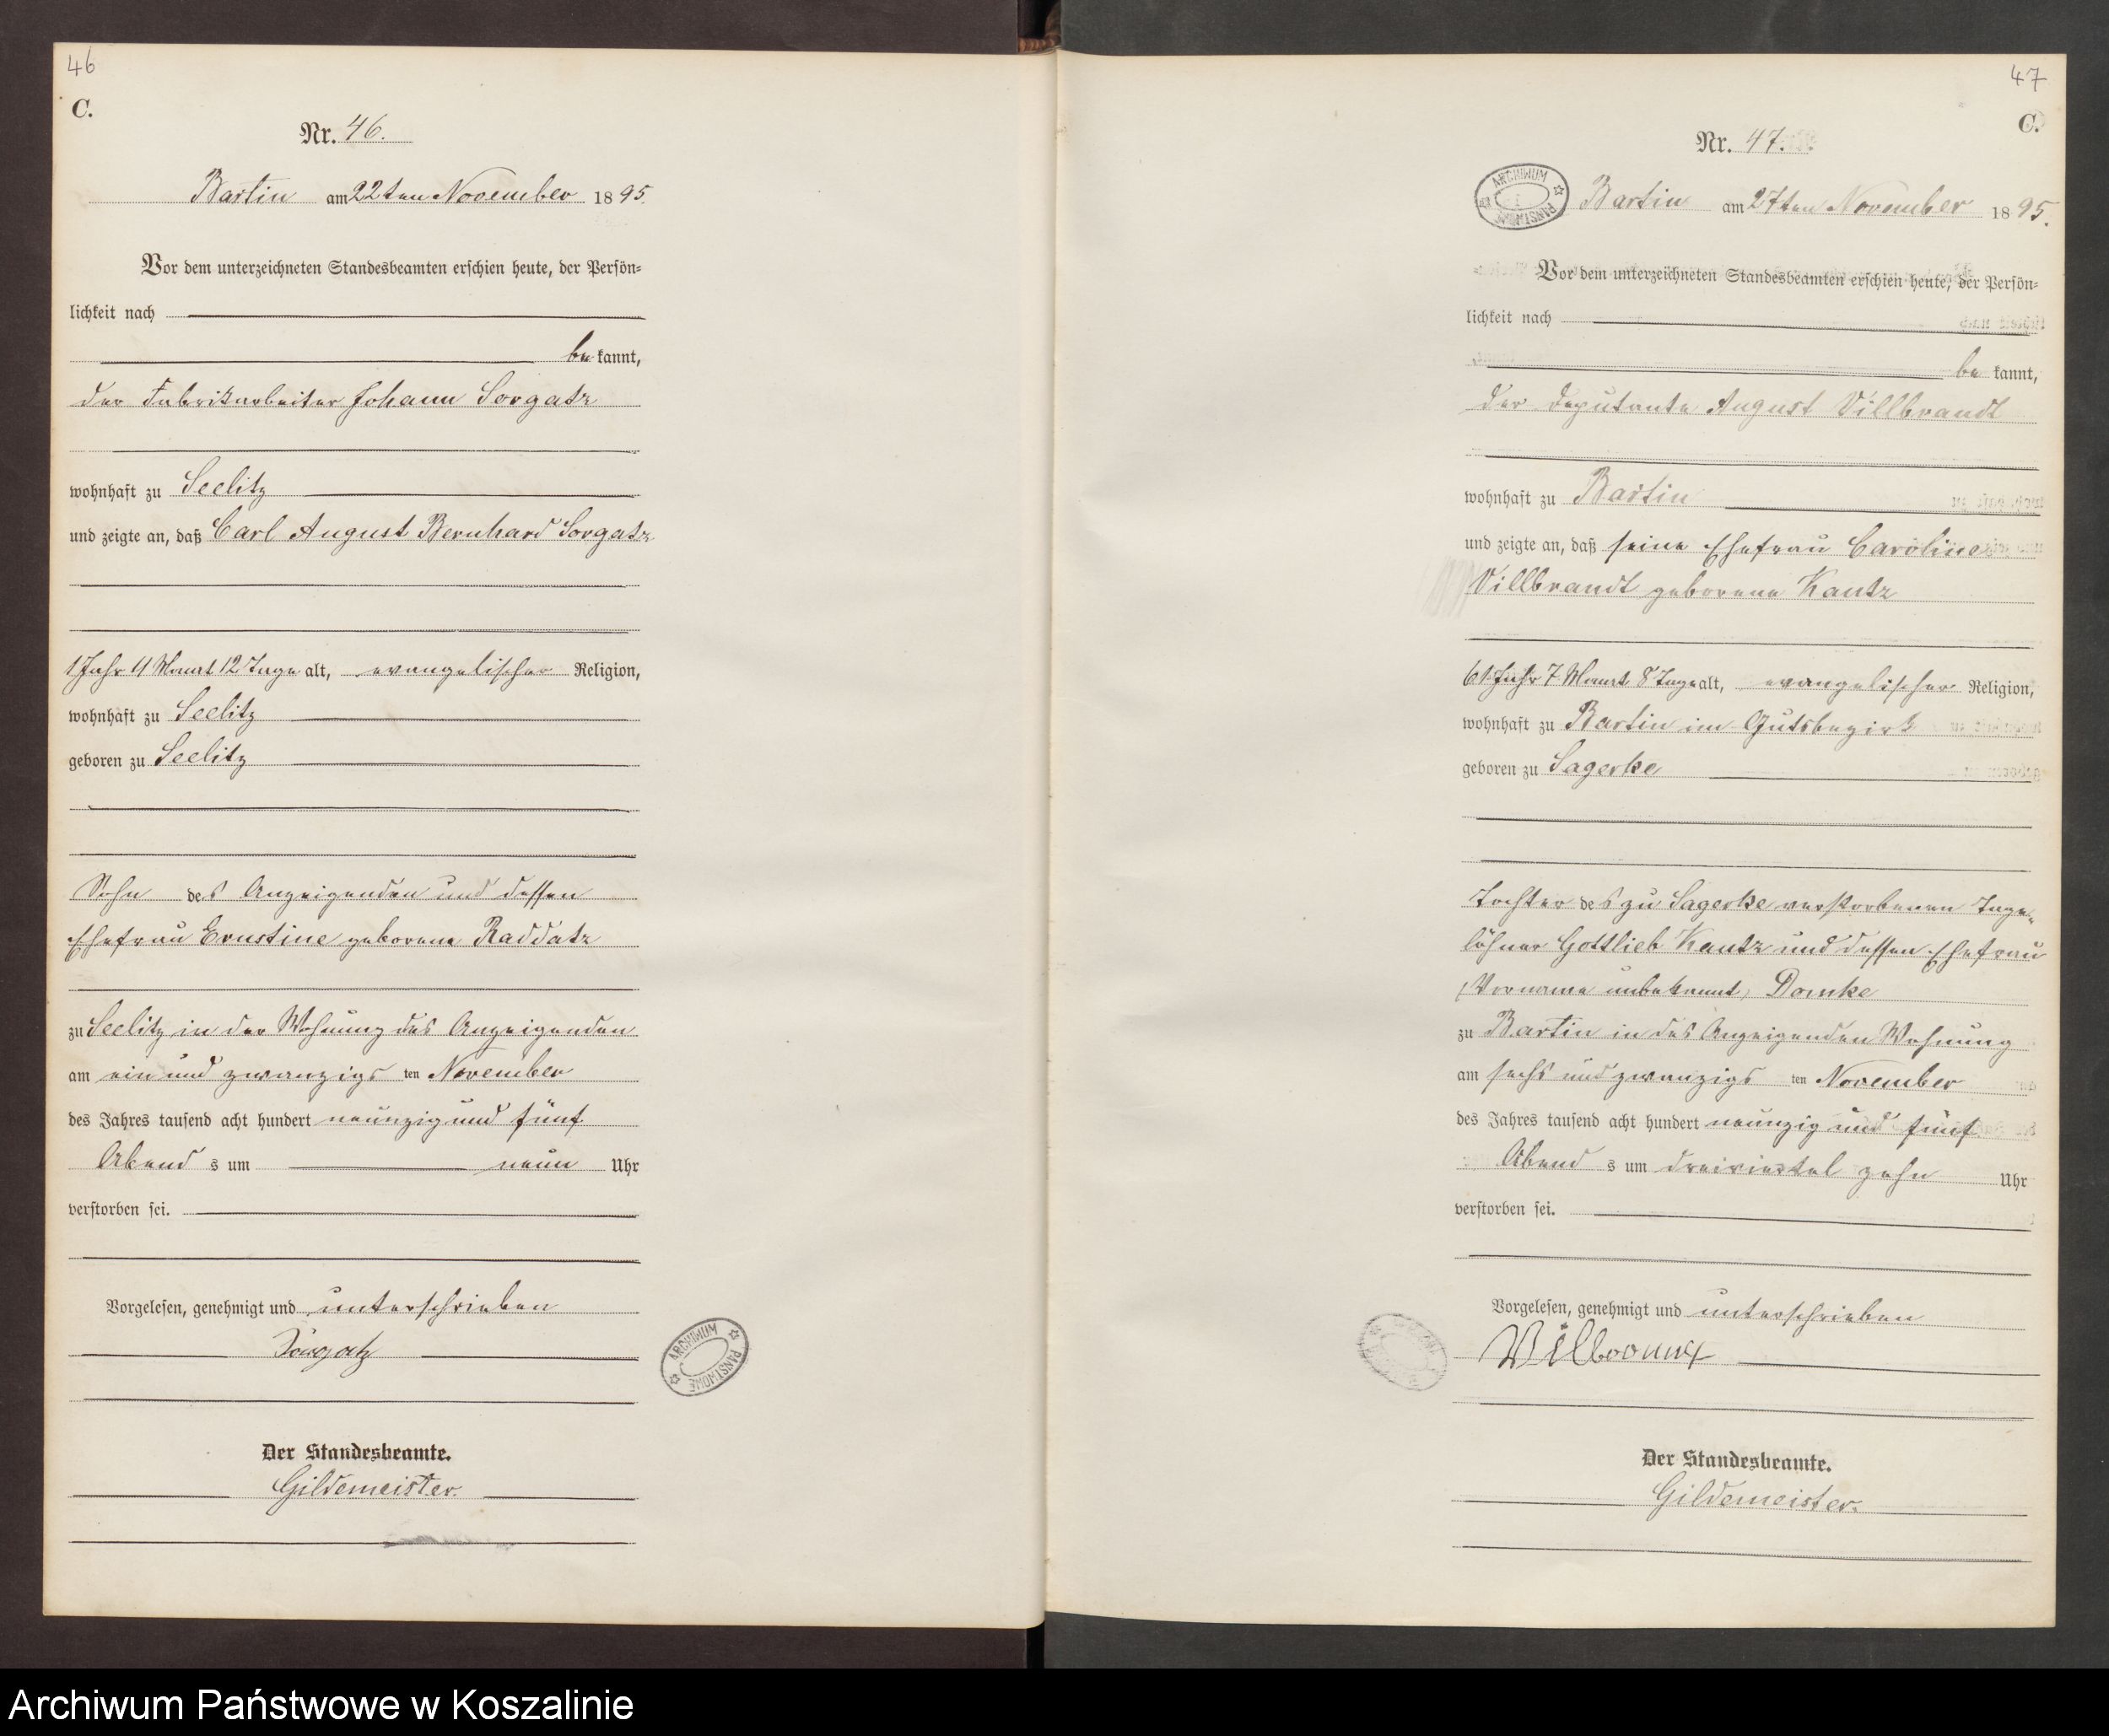 46
C.
Nr. 46.
Bartin am 22ten November 1895.
Vor dem unterzeichneten Standesbeamten erschien heute, der Persön=
lichkeit nach
be kannt,
der Fabrikarbeiter Johann Sorgatz
wohnhaft zu Seelitz
und zeigte an, daß Carl August Bernhard Sorgatz
1 Jahr 4 Monat 12 Tage alt, evangelischer Religion,
wohnhaft zu Seelitz
geboren zu Seelitz
Sohn des Anzeigenden und dessen
Ehefrau Ernstine geborene Raddatz
zu Seelitz in der Wohnung des Anzeigenden
am ein und zwanzigs ten November
des Jahres tausend acht hundert neunzig und fünf
Abend s um neun Uhr
verstorben sei.
Vorgelesen, genehmigt und unterschrieben
Sorgatz
Der Standesbeamte.
Gildemeister.
ARCHIWUM PAŃSTWOWE
47
C.
Nr. 47.
ARCHIWUM PAŃSTWOWE
Bartin am 27ten November 1895.
Vor dem unterzeichneten Standesbeamten erschien heute, der Persön=
lichkeit nach
be kannt,
der Deputante August Villbrandt
wohnhaft zu Bartin
und zeigte an, daß seine Ehefrau Caroline
Villbrandt geborene Kautz
61 Jahr 7 Monat 8 Tage alt, evangelischer Religion,
wohnhaft zu Bartin im Gutsbezirk
geboren zu Sagerke
Tochter des zu Sagerke verstorbenen Tage=
löhner Gottlieb Kautz und dessen Ehefrau
(Vorname unbekannt) Domke
zu Bartin in des Anzeigenden Wohnung
am sechs und zwanzigs ten November
des Jahres tausend acht hundert neunzig und fünf
Abend s um dreiviertel zehn Uhr
verstorben sei.
Vorgelesen, genehmigt und unterschrieben
Der Standesbeamte.
Gildemeister.
Archiwum Państwowe w Koszalinie